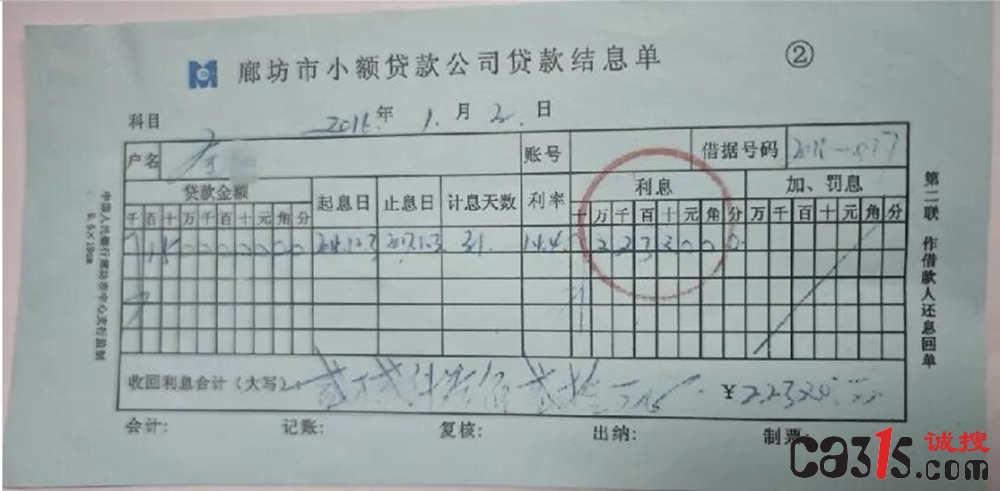 廊坊市小额贷款公司贷款结息单 ②
科目 年 1. 月 2. 日
户名 李 账号 借据号码
贷款金额 起息日 止息日 计息天数 利率 利息 加、罚息
千 百 十 万 千 百 十 元 角 分 十 万 千 百 十 元 角 分 万 千 百 十 元 角 分
1 5 0 0 0 0 0 0 0 31. 14.4 2 2 3 2 0 0 0
收回利息合计（大写） ¥ 22320
会计： 记账： 复核： 出纳： 制票：
中国人民银行廊坊市中心支行监制
8.5×19cm
第二联 作借款人还息回单
ca315诚搜
.com